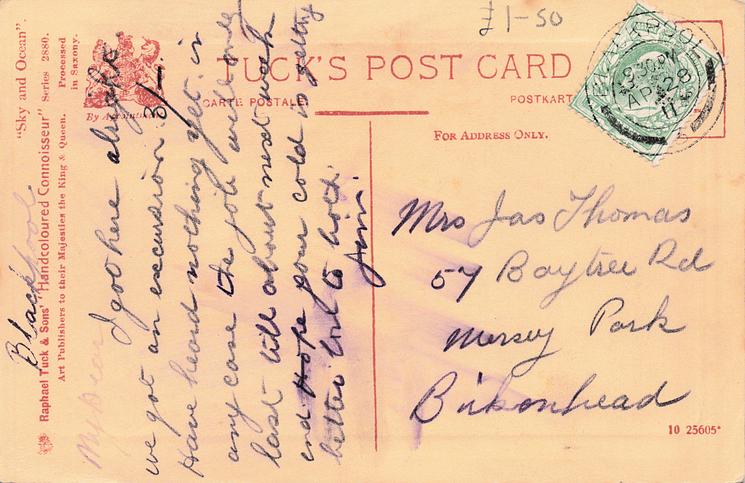 £1-50
TUCK'S POST CARD
CARTE POSTALE.
POSTKARTE
By Appointment
FOR ADDRESS ONLY.
"Sky and Ocean".
Raphael Tuck & Sons' "Handcoloured Connoisseur" Series 2880.
Art Publishers to their Majesties the King & Queen.
Processed in Saxony.
Blackpool
My Dear
I got here alright.
we got an excursion 3/-.
Have heard nothing yet. in
any case the job will only
last till about next week
end. Hope your cold is getting
better
to hold.
Jim.
9.30 PM
AP 28
11
Mrs Jas Thomas
57 Baytree Rd
Mersey Park
Birkenhead
10 25605*